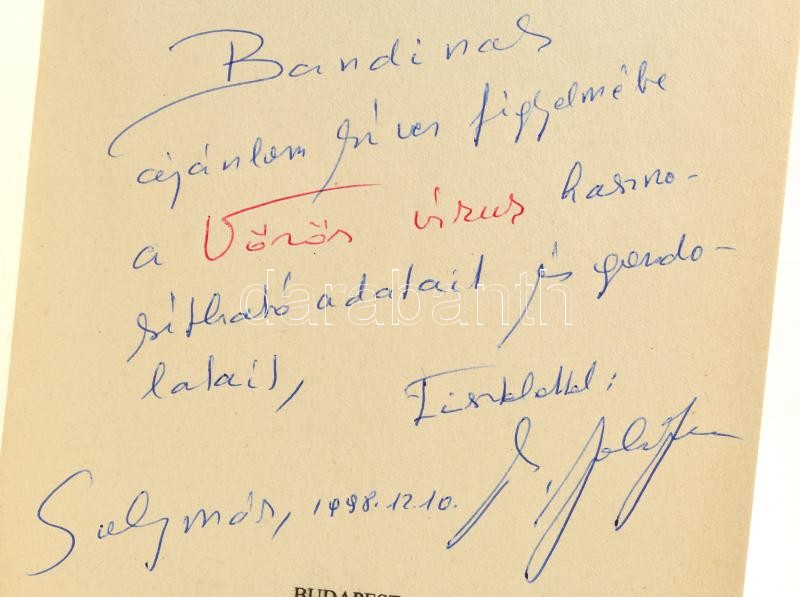 Bandinak
ajánlom szíves figyelmébe
a Vörös vírus haszno-
sítható adatait és gondo-
latait,
Tisztelettel:
Solymár, 1998.12.10.
BUDAPEST
darabanth